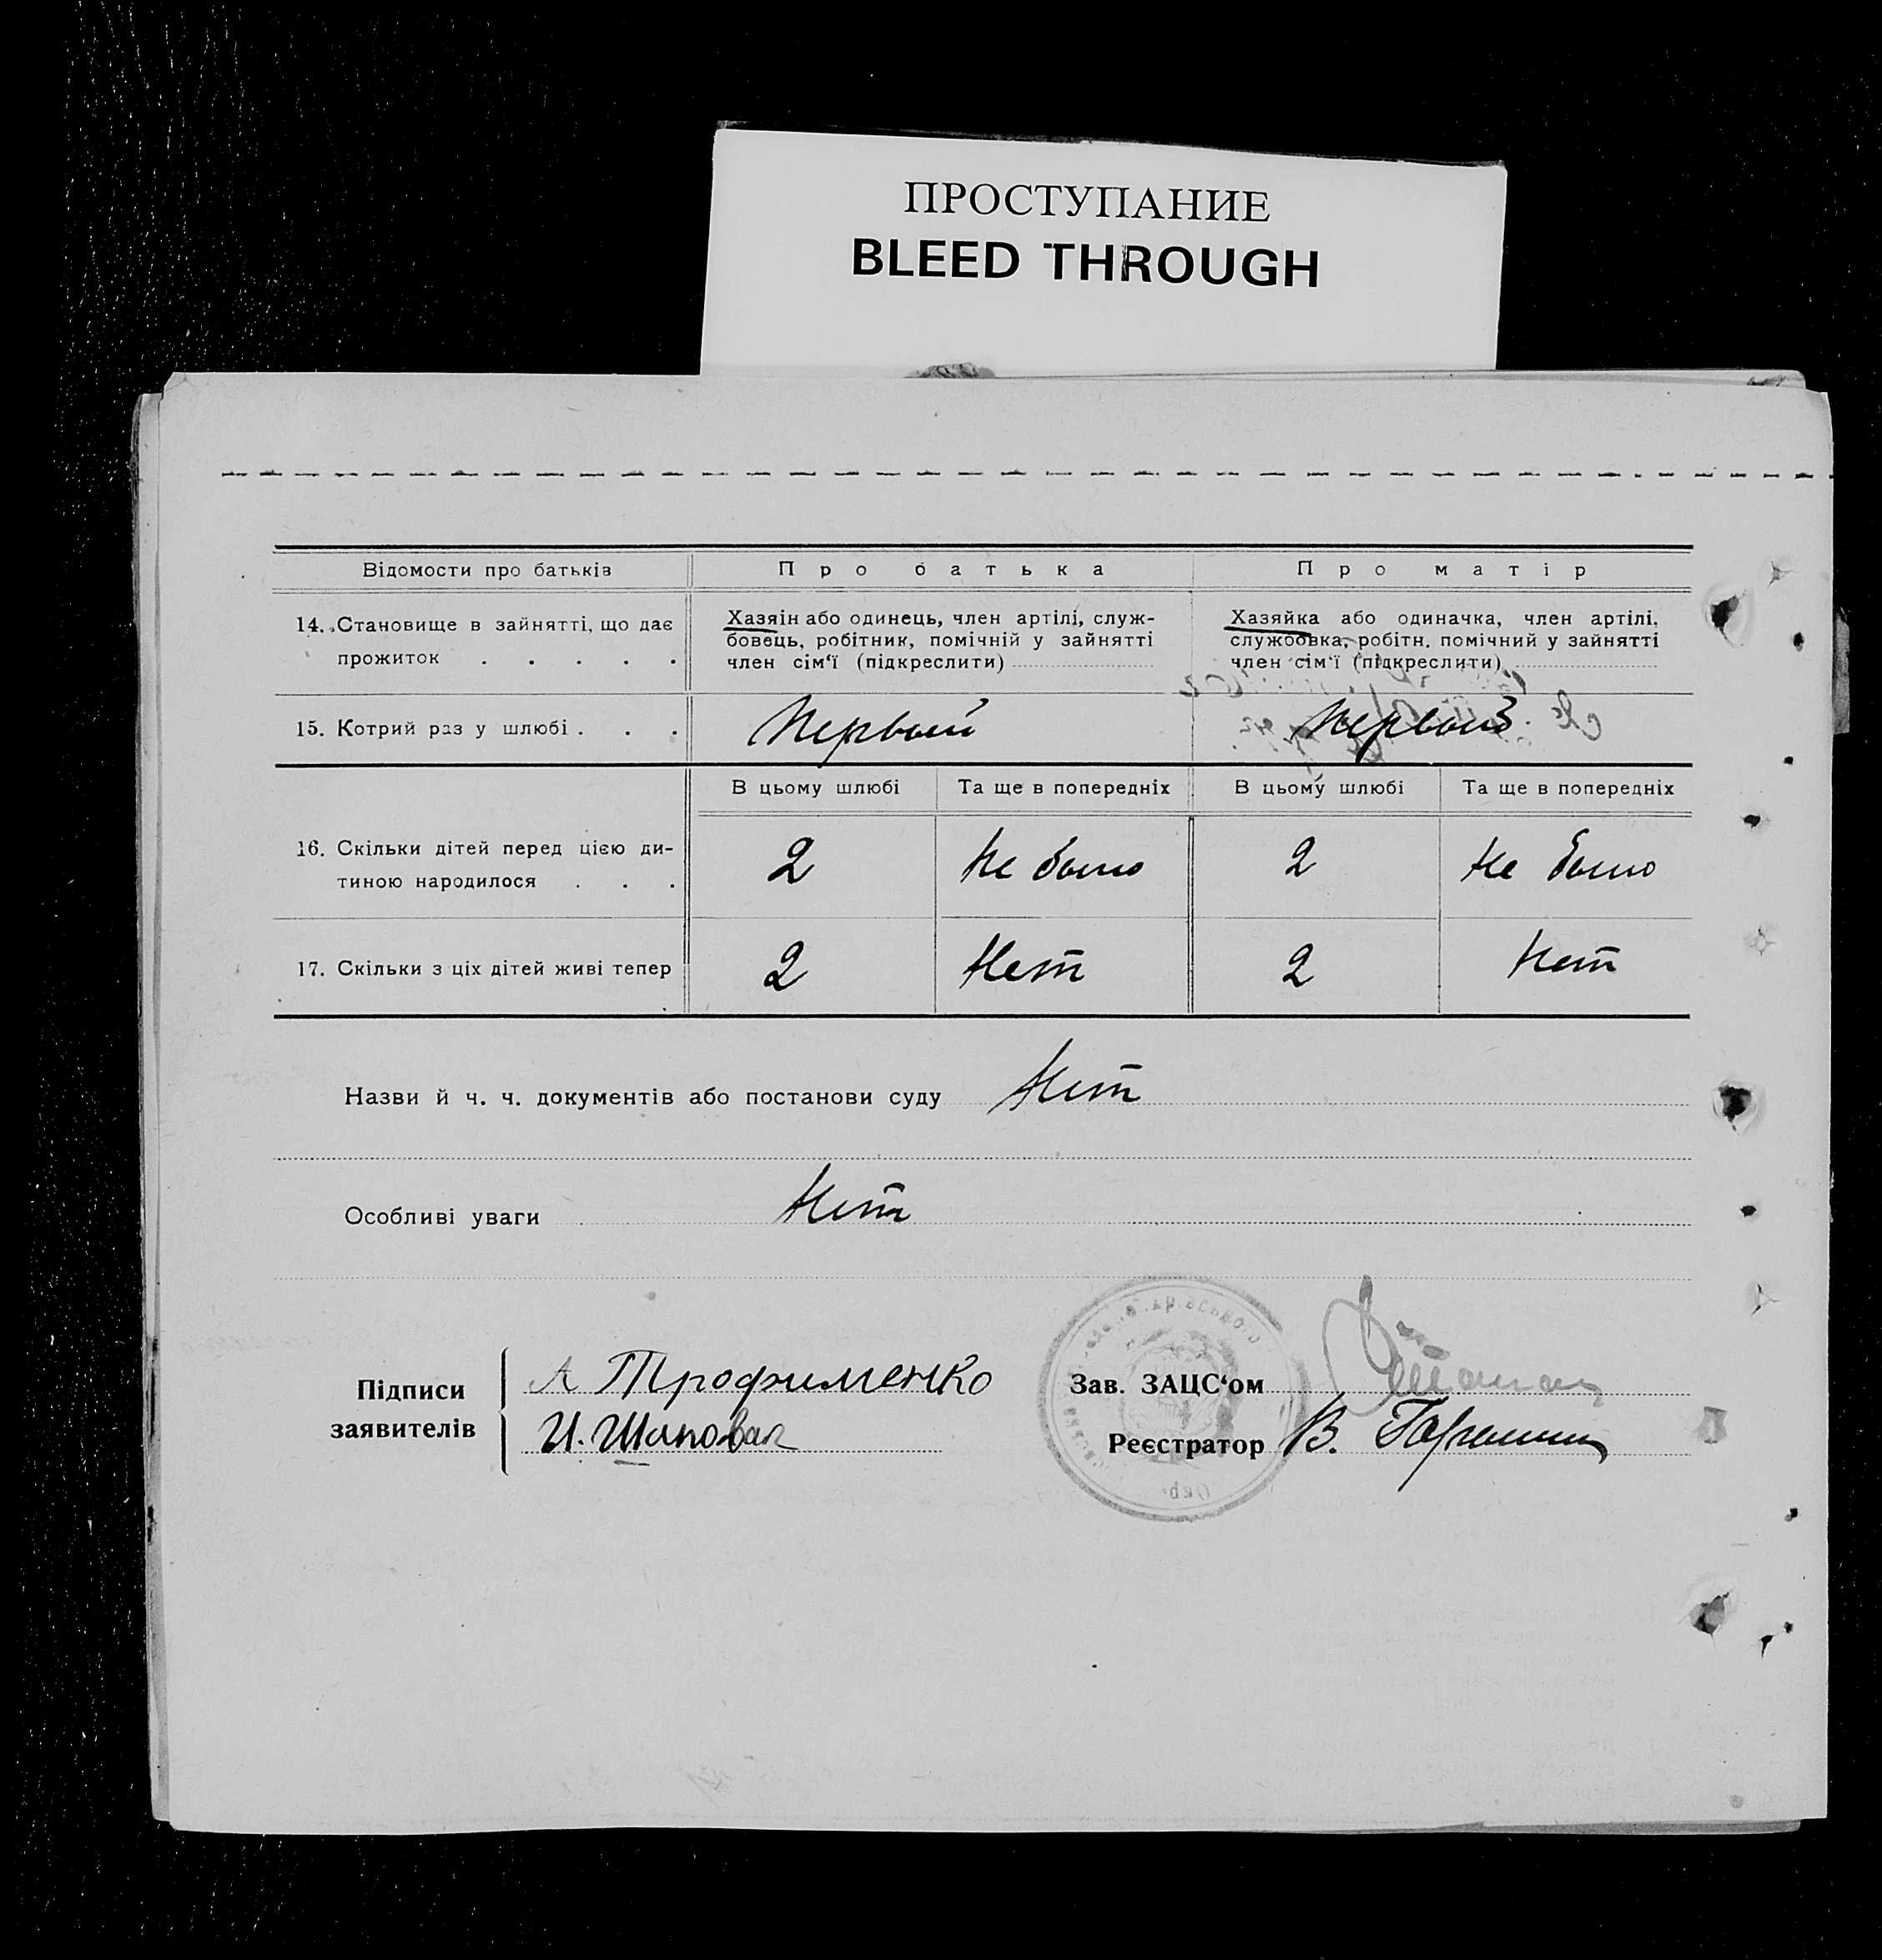 ПРОСТУПАНИЕ
BLEED THROUGH
Відомости про батьків
Про батька
Про матір
14. Становище в зайнятті, що дає
прожиток . . . . .
Хазяін або одинець, член артілі, служ-
бовець, робітник, помічній у зайнятті
член сім'ї (підкреслити)
Хазяйка або одиначка, член артілі,
службовка, робітн. помічний у зайнятті
член сім'ї (підкреслити)
15. Котрий раз у шлюбі . . .
Первый
Первый
В цьому шлюбі
Та ще в попередніх
В цьому шлюбі
Та ще в попередніх
16. Скільки дітей перед цією ди-
тиною народилося . . .
2
Не было
2
Не было
17. Скільки з ціх дітей живі тепер
2
Нет
2
Нет
Назви й ч. ч. документів або постанови суду Нет
Особливі уваги Нет
Підписи
заявителів
А Трофименко
И. Шаповал
Зав. ЗАЦС'ом
Реєстратор В.